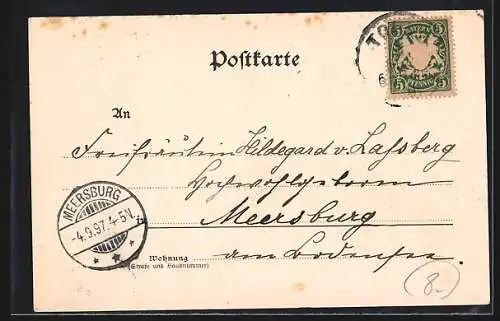 Postkarte
5 BAYERN 5
5 PFENNIG 5
An
Freifräulein Hildegard v. Laßberg
Hochwohlgeboren
Meersburg
am Bodensee.
MEERSBURG
-4.9.97.4-5N.
in
Wohnung
(Straße und Hausnummer)
8.-